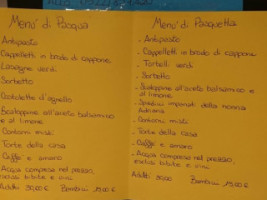 Menu' di Pasqua
Antipasto
Cappelletti in brodo di cappone
Lasagne verdi
Sorbetto
Costolette d'agnello
Scaloppine all'aceto balsamico
e al limone
Contorni misti
Torta della casa
Caffè e amaro
Acqua compresa nel prezzo,
esclusi bibite e vini
Adulti 30,00 € Bambini 15,00 €
Menu' di Pasquetta
. Antipasto
. Cappelletti in brodo di cappone
. Tortelli verdi
. Sorbetto
. Scaloppine all'aceto balsamico
e al limone
. Spezzatini impanati della nonna
. Contorni misti
. Torta della casa
. Caffè e amaro
. Acqua compresa nel prezzo,
esclusi bibite e vini
Adulti Bambini 15,00 €